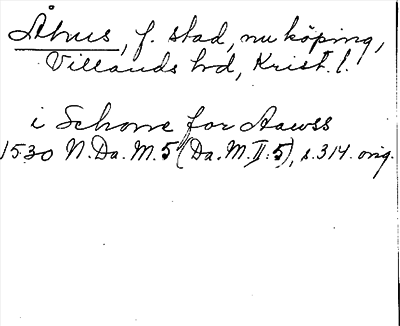 Åhus, f. stad, nu köping,
Villands hd, Krist. l.
i Schone for Aawss
1530 N. Da. M. 5 (Da. M. II:5), s. 314. orig.